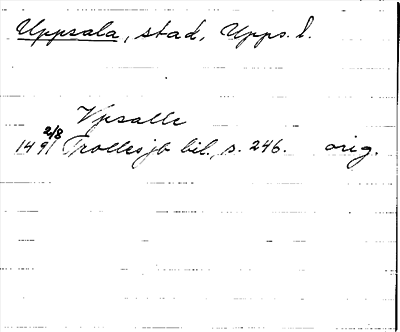 Uppsala, stad, Upps. l.
Vpsalle
1491 2/8 Trolles jb bil., s. 246. orig.